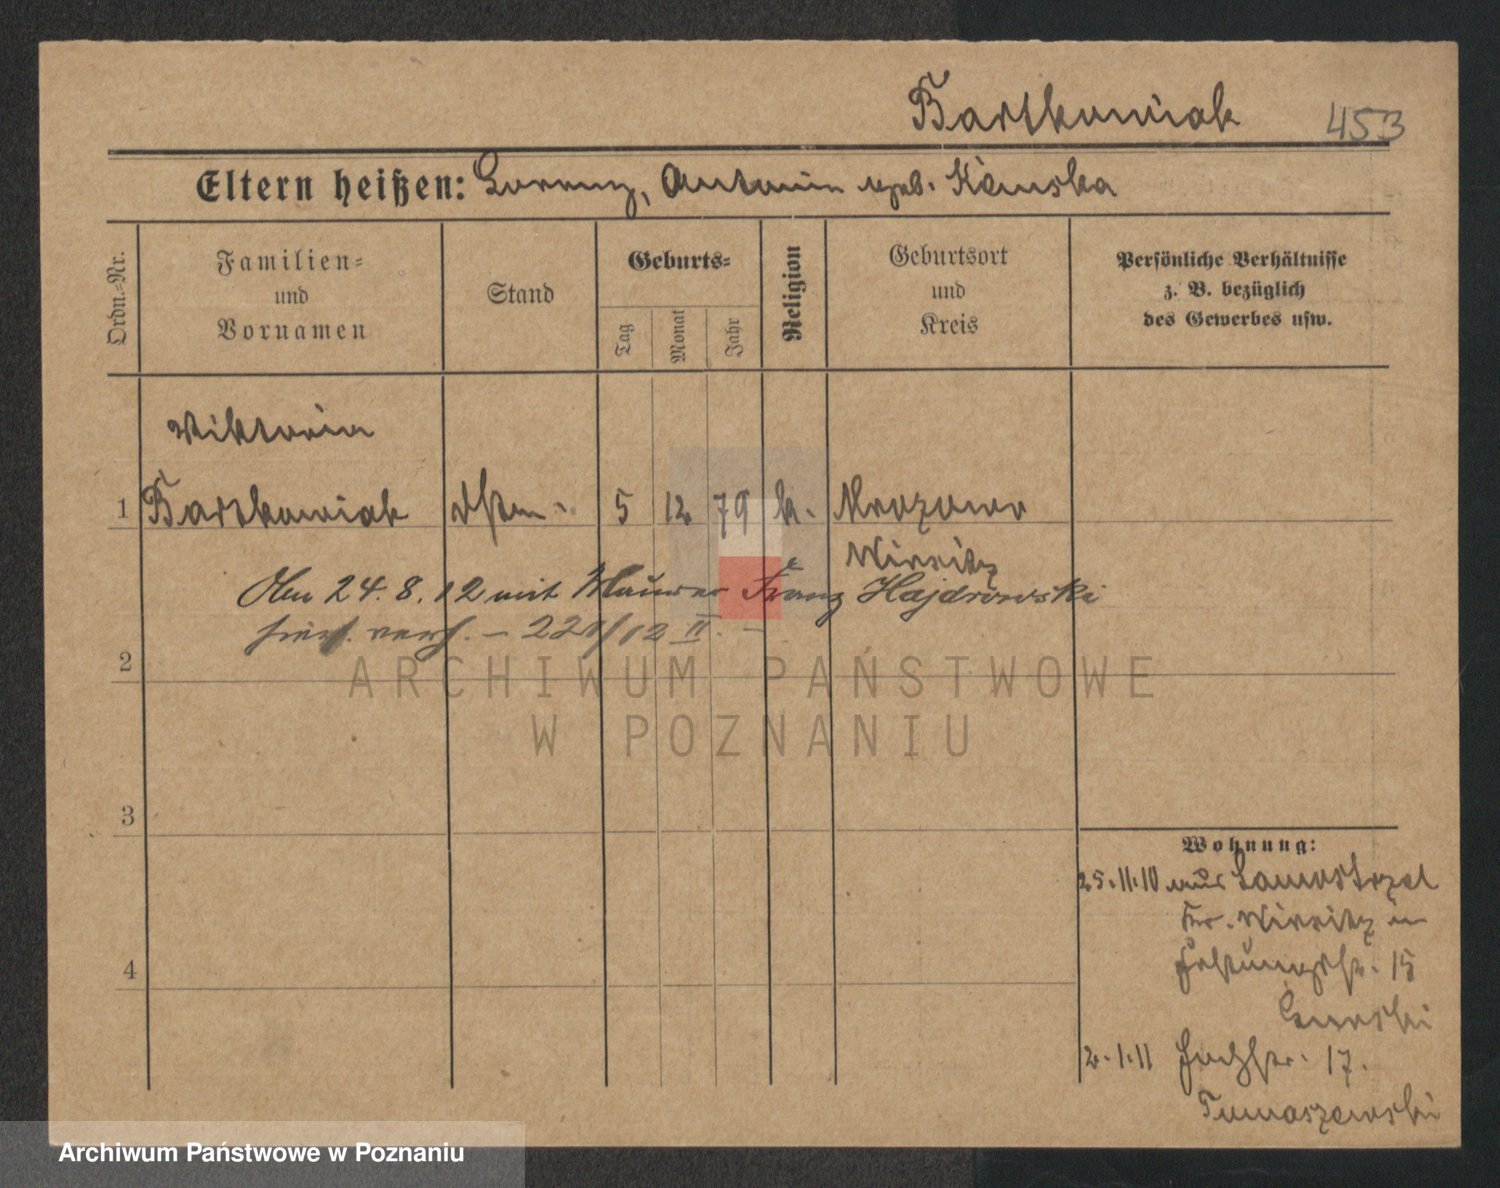 Bartkowiak 453
Eltern heißen: Lorenz, Antonin geb. Kamska
Ordn.-Nr.
Familien-
und
Vornamen
Stand
Geburts-
Tag
Monat
Jahr
Religion
Geburtsort
und
Kreis
Persönliche Verhältnisse
z. B. bezüglich
des Gewerbes usw.
Viktoria
1 Bartkowiak 5 12 79 k. Mrozowo
Wirsitz
Am 24.8.12 mit Maurer Franz Hajdrowski
hier verh. – 12 II. –
2
3
4
Wohnung:
25.11.10 aus Samostrzel
Kr. Wirsitz in
15
2.1.11 17.
Tomaszewski
ARCHIWUM PAŃSTWOWE
W POZNANIU
Archiwum Państwowe w Poznaniu